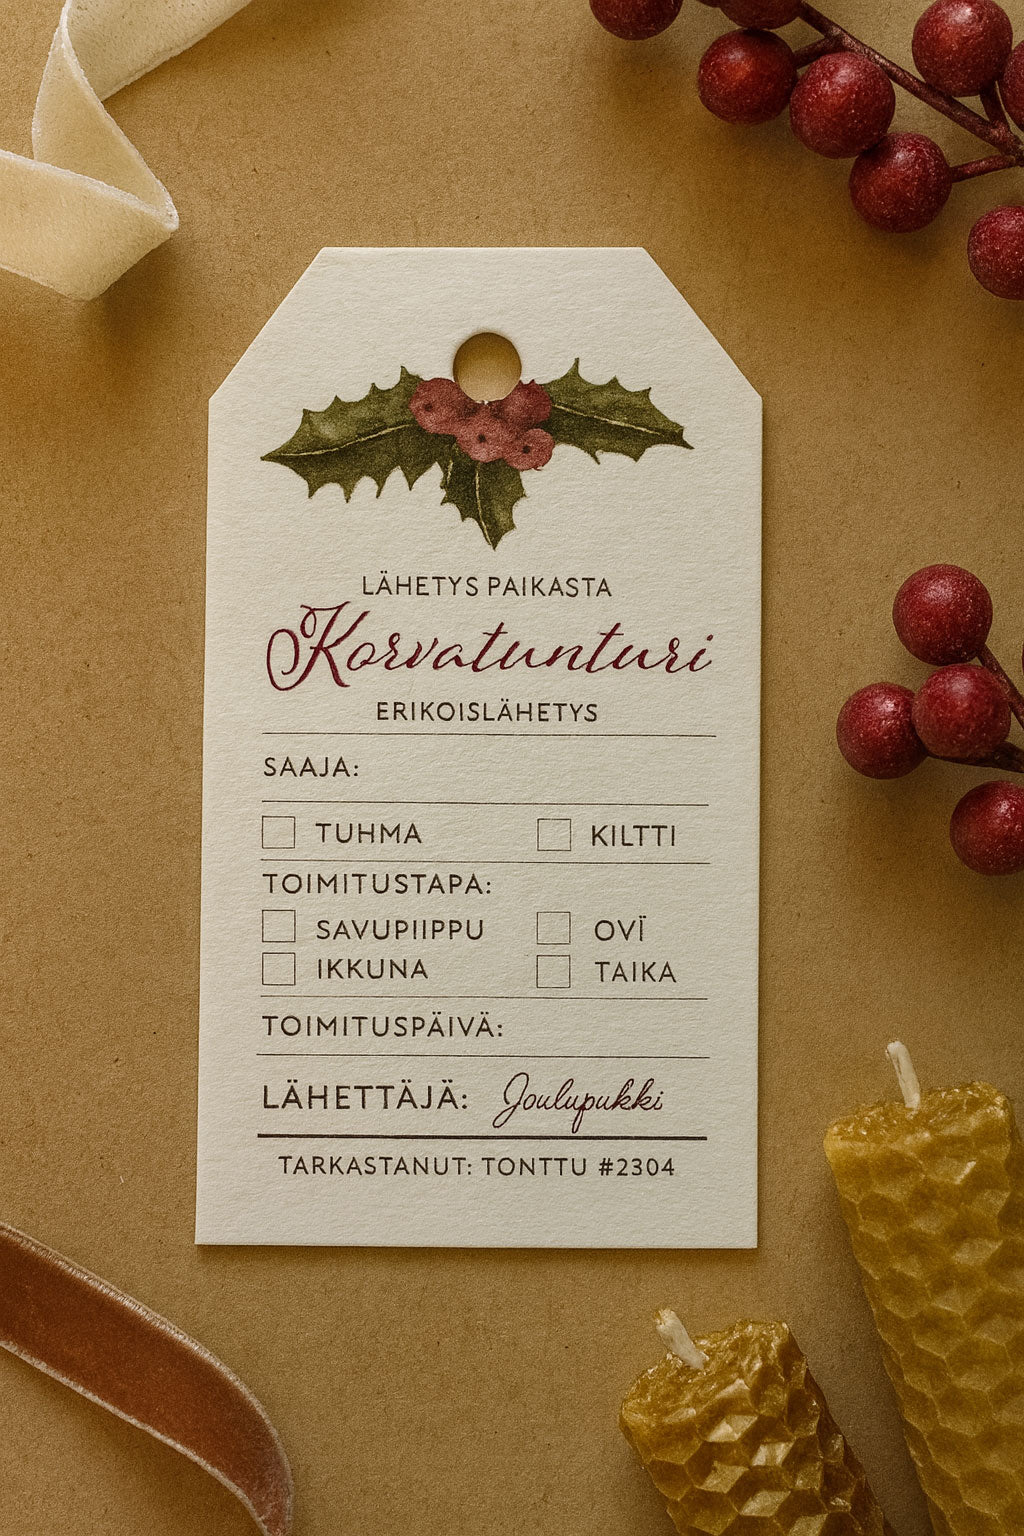 LÄHETYS PAIKASTA
Korvatunturi
ERIKOISLÄHETYS
SAAJA:
TUHMA KILTTI
TOIMITUSTAPA:
SAVUPIIPPU OVÏ
IKKUNA TAIKA
TOIMITUSPÄIVÄ:
LÄHETTÄJÄ: Joulupukki
TARKASTANUT: TONTTU #2304